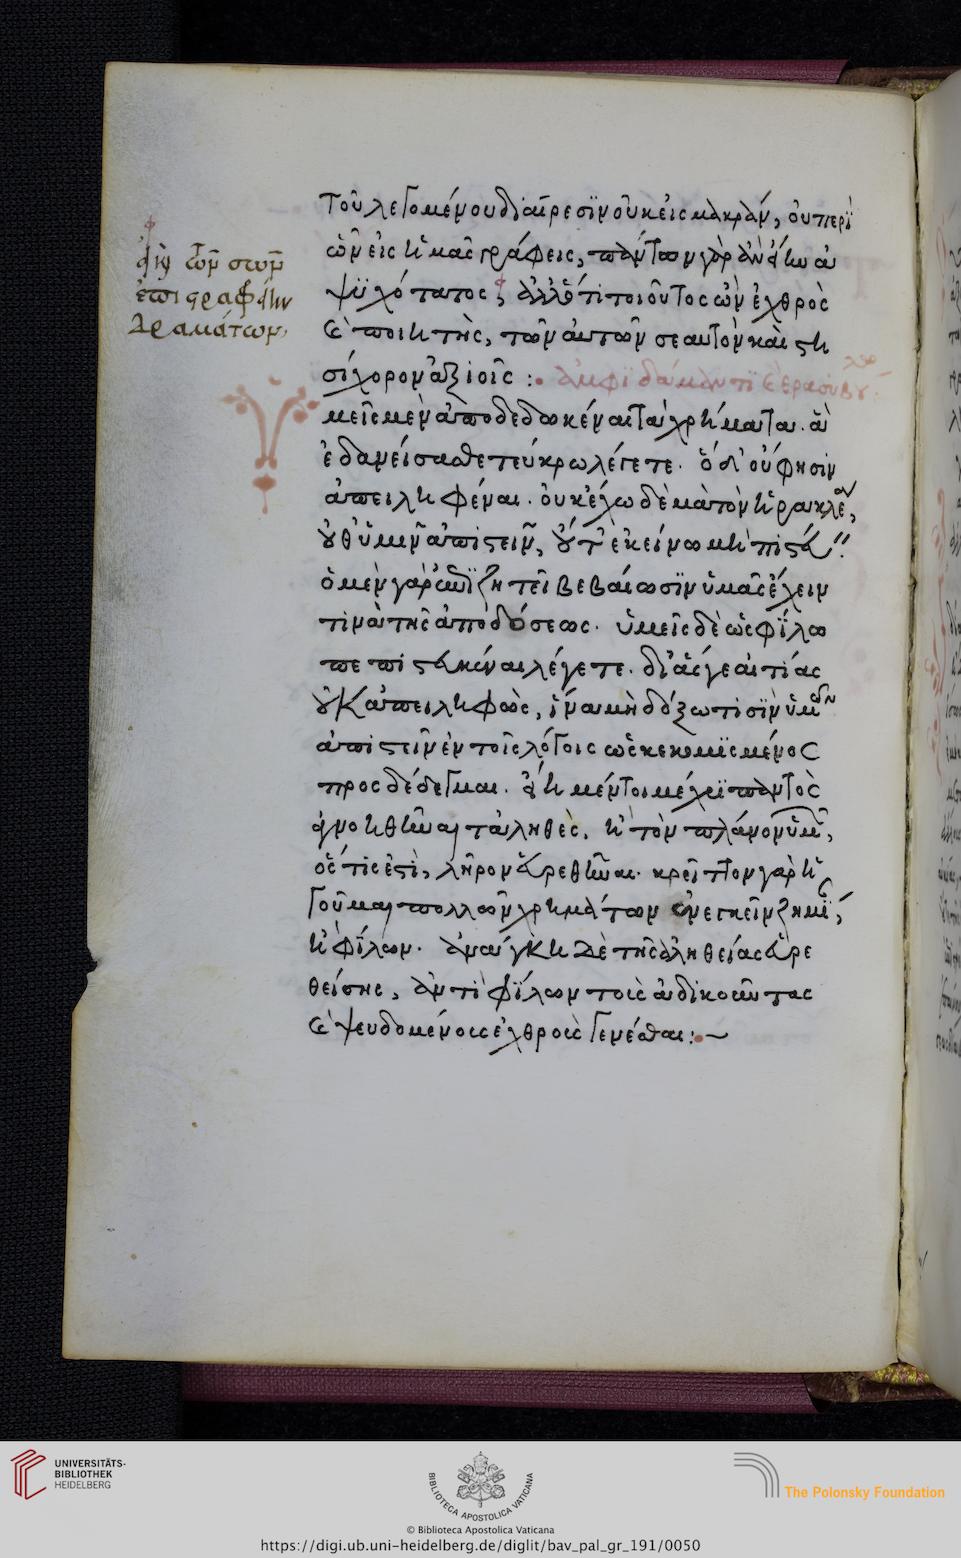 τοῦ λεγομένου διαίρεσιν οὐκ εἰς μακράν, οὐ περὶ
ὧν εἰς ἡμᾶς γράφεις, πάντων γὰρ ἂν ἦν
ψυχότατος, ἀλλ' ὅτι τοιοῦτος ὢν ἐχθρὸς
καὶ ποιητὴς, τῶν αὐτῶν σεαυτὸν καὶ στη
σίχορον ἀξιοῖς :
ἀμφιδάμαντι καὶ θρασυβού
μεῖς μὲν ἀποδεδωκέναι τὰ χρήματα ἃ
ἐδανείσασθε τεύκρω λέγετε. ὁ δ' οὔ φησιν
ἀπειληφέναι. οὐκ ἔχω δὲ μὰ τὸν ἡρακλέα,
οὔθ' ὑμῖν ἀπιστεῖν, οὔτ' ἐκείνω μὴ πιστεύειν.
ὁ μὲν γὰρ ἐπιζητεῖ βεβαίωσιν ὑμᾶς ἔχειν
τινὰ τῆς ἀποδόσεως. ὑμεῖς δὲ ὡς φίλω
πεπιστευκέναι λέγετε. δι' ἅς γε αἰτίας
οὐκ ἀπειληφὼς, ἵνα μὴ δόξω τισὶν ὑμῶν
ἀπιστεῖν ἐν τοῖς λόγοις ὡς κεκομισμένος
προσδέδεγμαι. ἔτι μέντοι μέχρι παντὸς
γνοηθῆναι τἀληθὲς, ἢ τὸν πλάνον ὑμῶν,
ὅς τίς ἐστὶ, λῆρον εὑρεθῆναι. κρεῖττον γὰρ ἡ
γοῦμαι πολλῶν χρημάτων ἐνεγκεῖν ζημίαν,
ἢ φίλων. ἀνάγκη δὲ τῆς ἀληθείας εὑρε
θείσης, ἀντὶ φίλων τοὺς ἀδικοῦντας
καὶ ψευδομένους ἐχθροὺς γενέσθαι :
ἐπιγραφὴν
δραμάτων
UNIVERSITÄTS-
BIBLIOTHEK
HEIDELBERG
BIBLIOTECA APOSTOLICA VATICANA
The Polonsky Foundation
© Biblioteca Apostolica Vaticana
https://digi.ub.uni-heidelberg.de/diglit/bav_pal_gr_191/0050